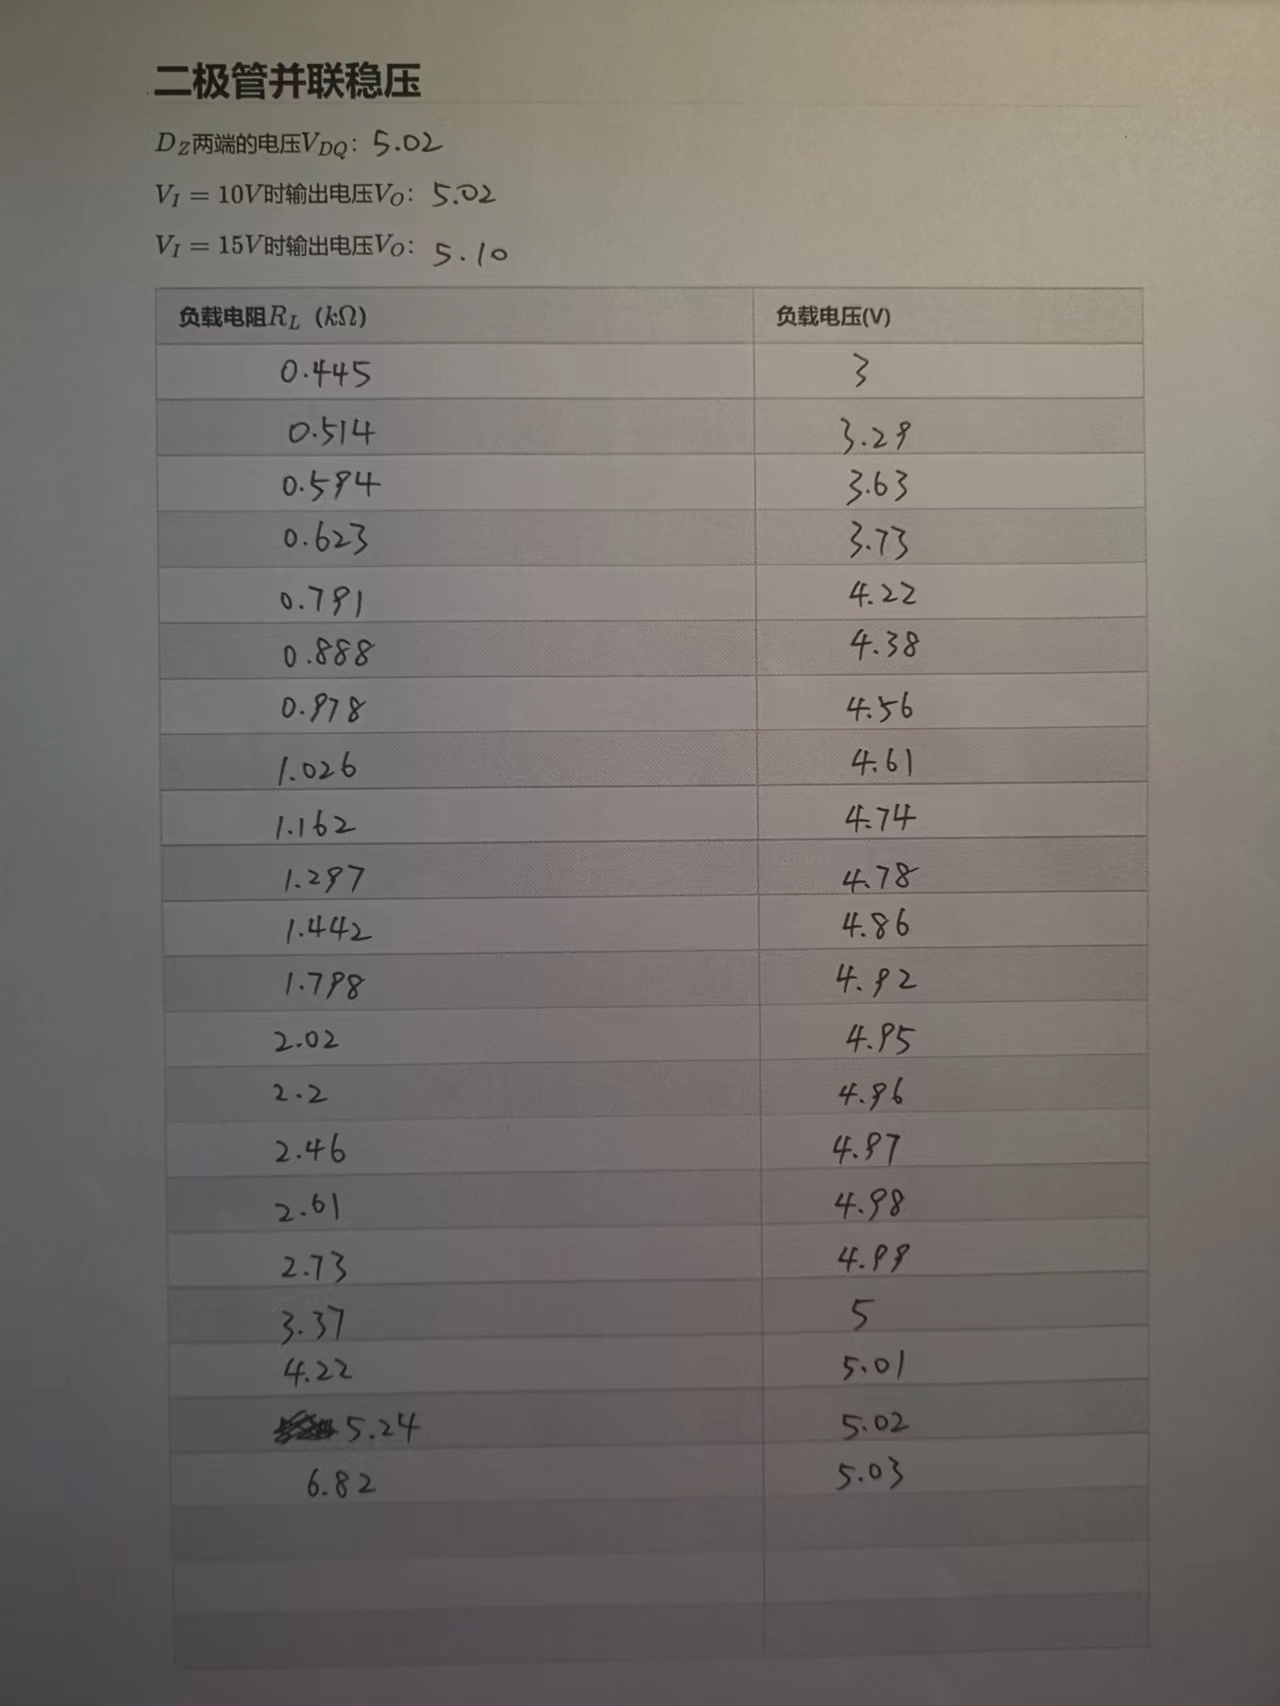 二极管并联稳压
D_Z两端的电压V_DQ: 5.02
V_I = 10V时输出电压V_O: 5.02
V_I = 15V时输出电压V_O: 5.10
负载电阻R_L (kΩ) 负载电压(V)
0.445 3
0.514 3.29
0.594 3.63
0.623 3.73
0.791 4.22
0.888 4.38
0.978 4.56
1.026 4.61
1.162 4.74
1.297 4.78
1.442 4.86
1.798 4.92
2.02 4.95
2.2 4.96
2.46 4.97
2.61 4.98
2.73 4.99
3.37 5
4.22 5.01
5.24 5.02
6.82 5.03